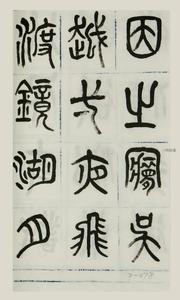 因之夢吳
越一夜飛
渡鏡湖月